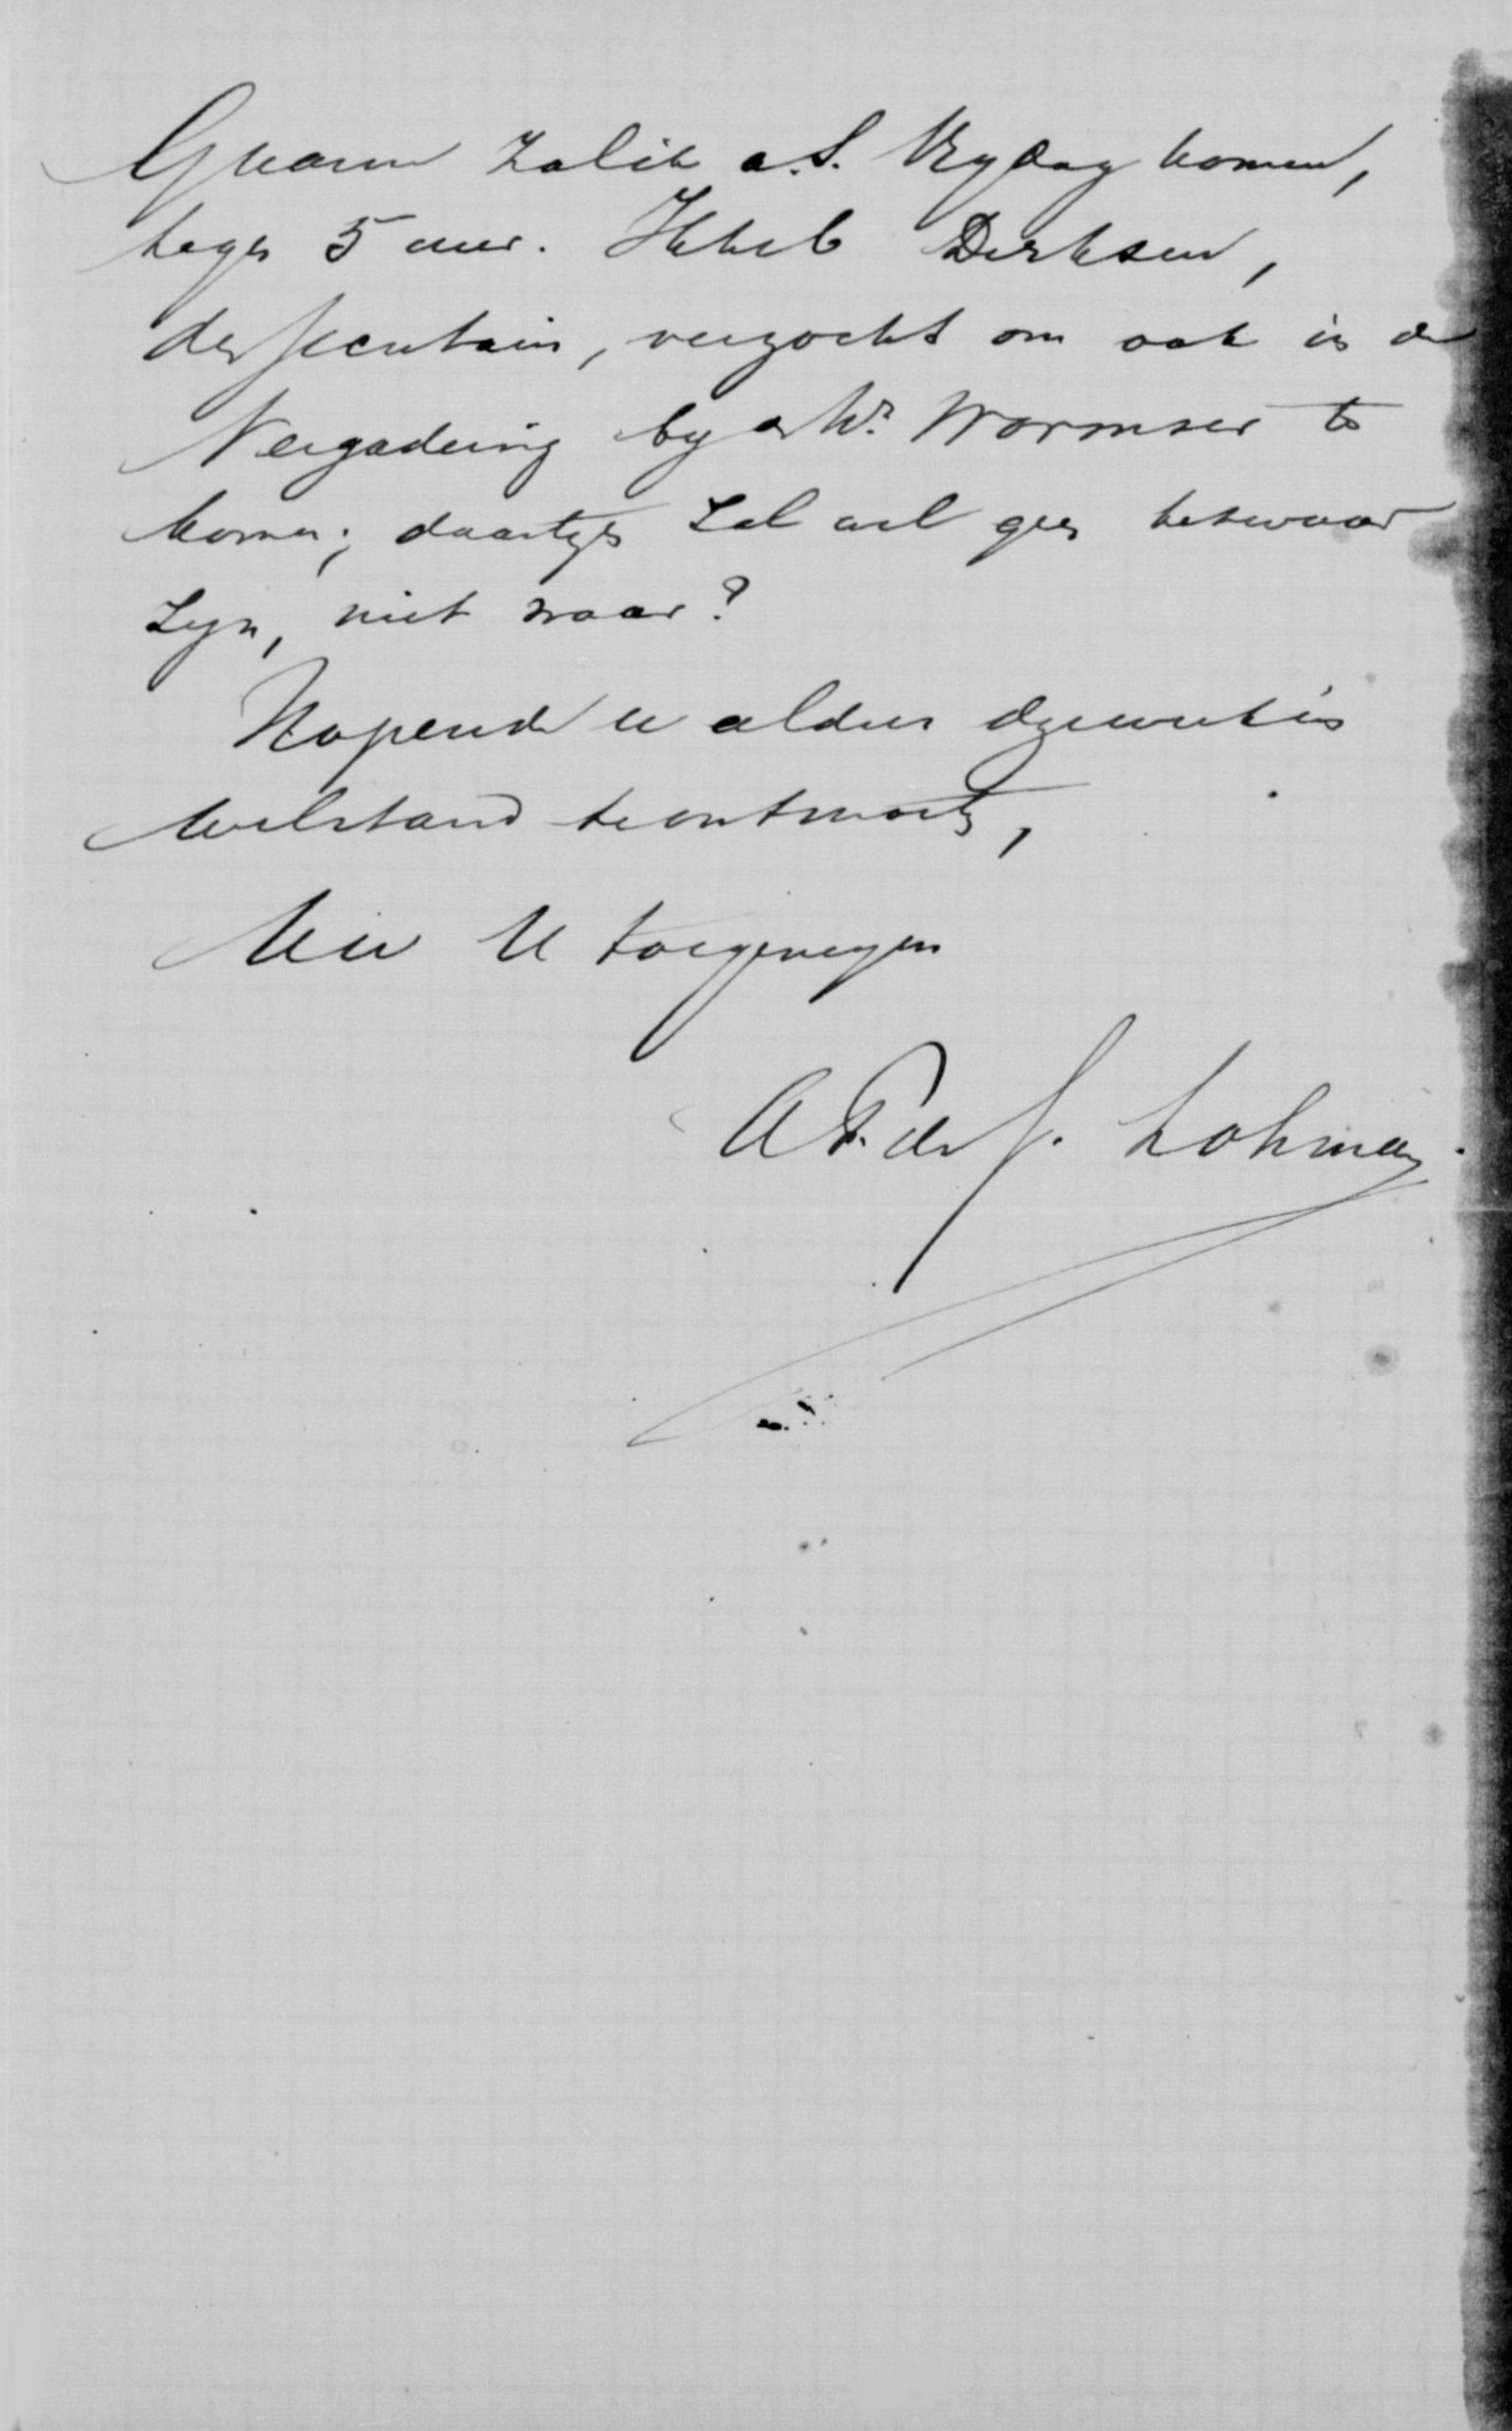 Gaarne zal ik a.S. Vrydag komen,
tegen 5 uur. Ik heb Derksen,
den secretaris, verzocht om ook in de
Vergadering by de Hr. Wormser te
komen; daartegen zal wel geen bezwaar
zyn, niet waar?
Hopende u aldaar in
welstand te ontmoeten,
U toegenegen
A F. de S. Lohman.